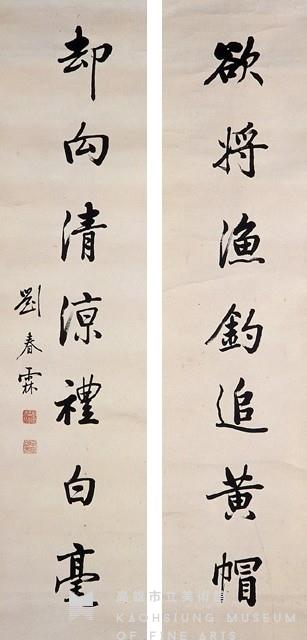 欲將漁釣追黃帽
却向清涼禮白毫
劉春霖
高雄市立美術館
KAOHSIUNG MUSEUM
OF FINE ARTS